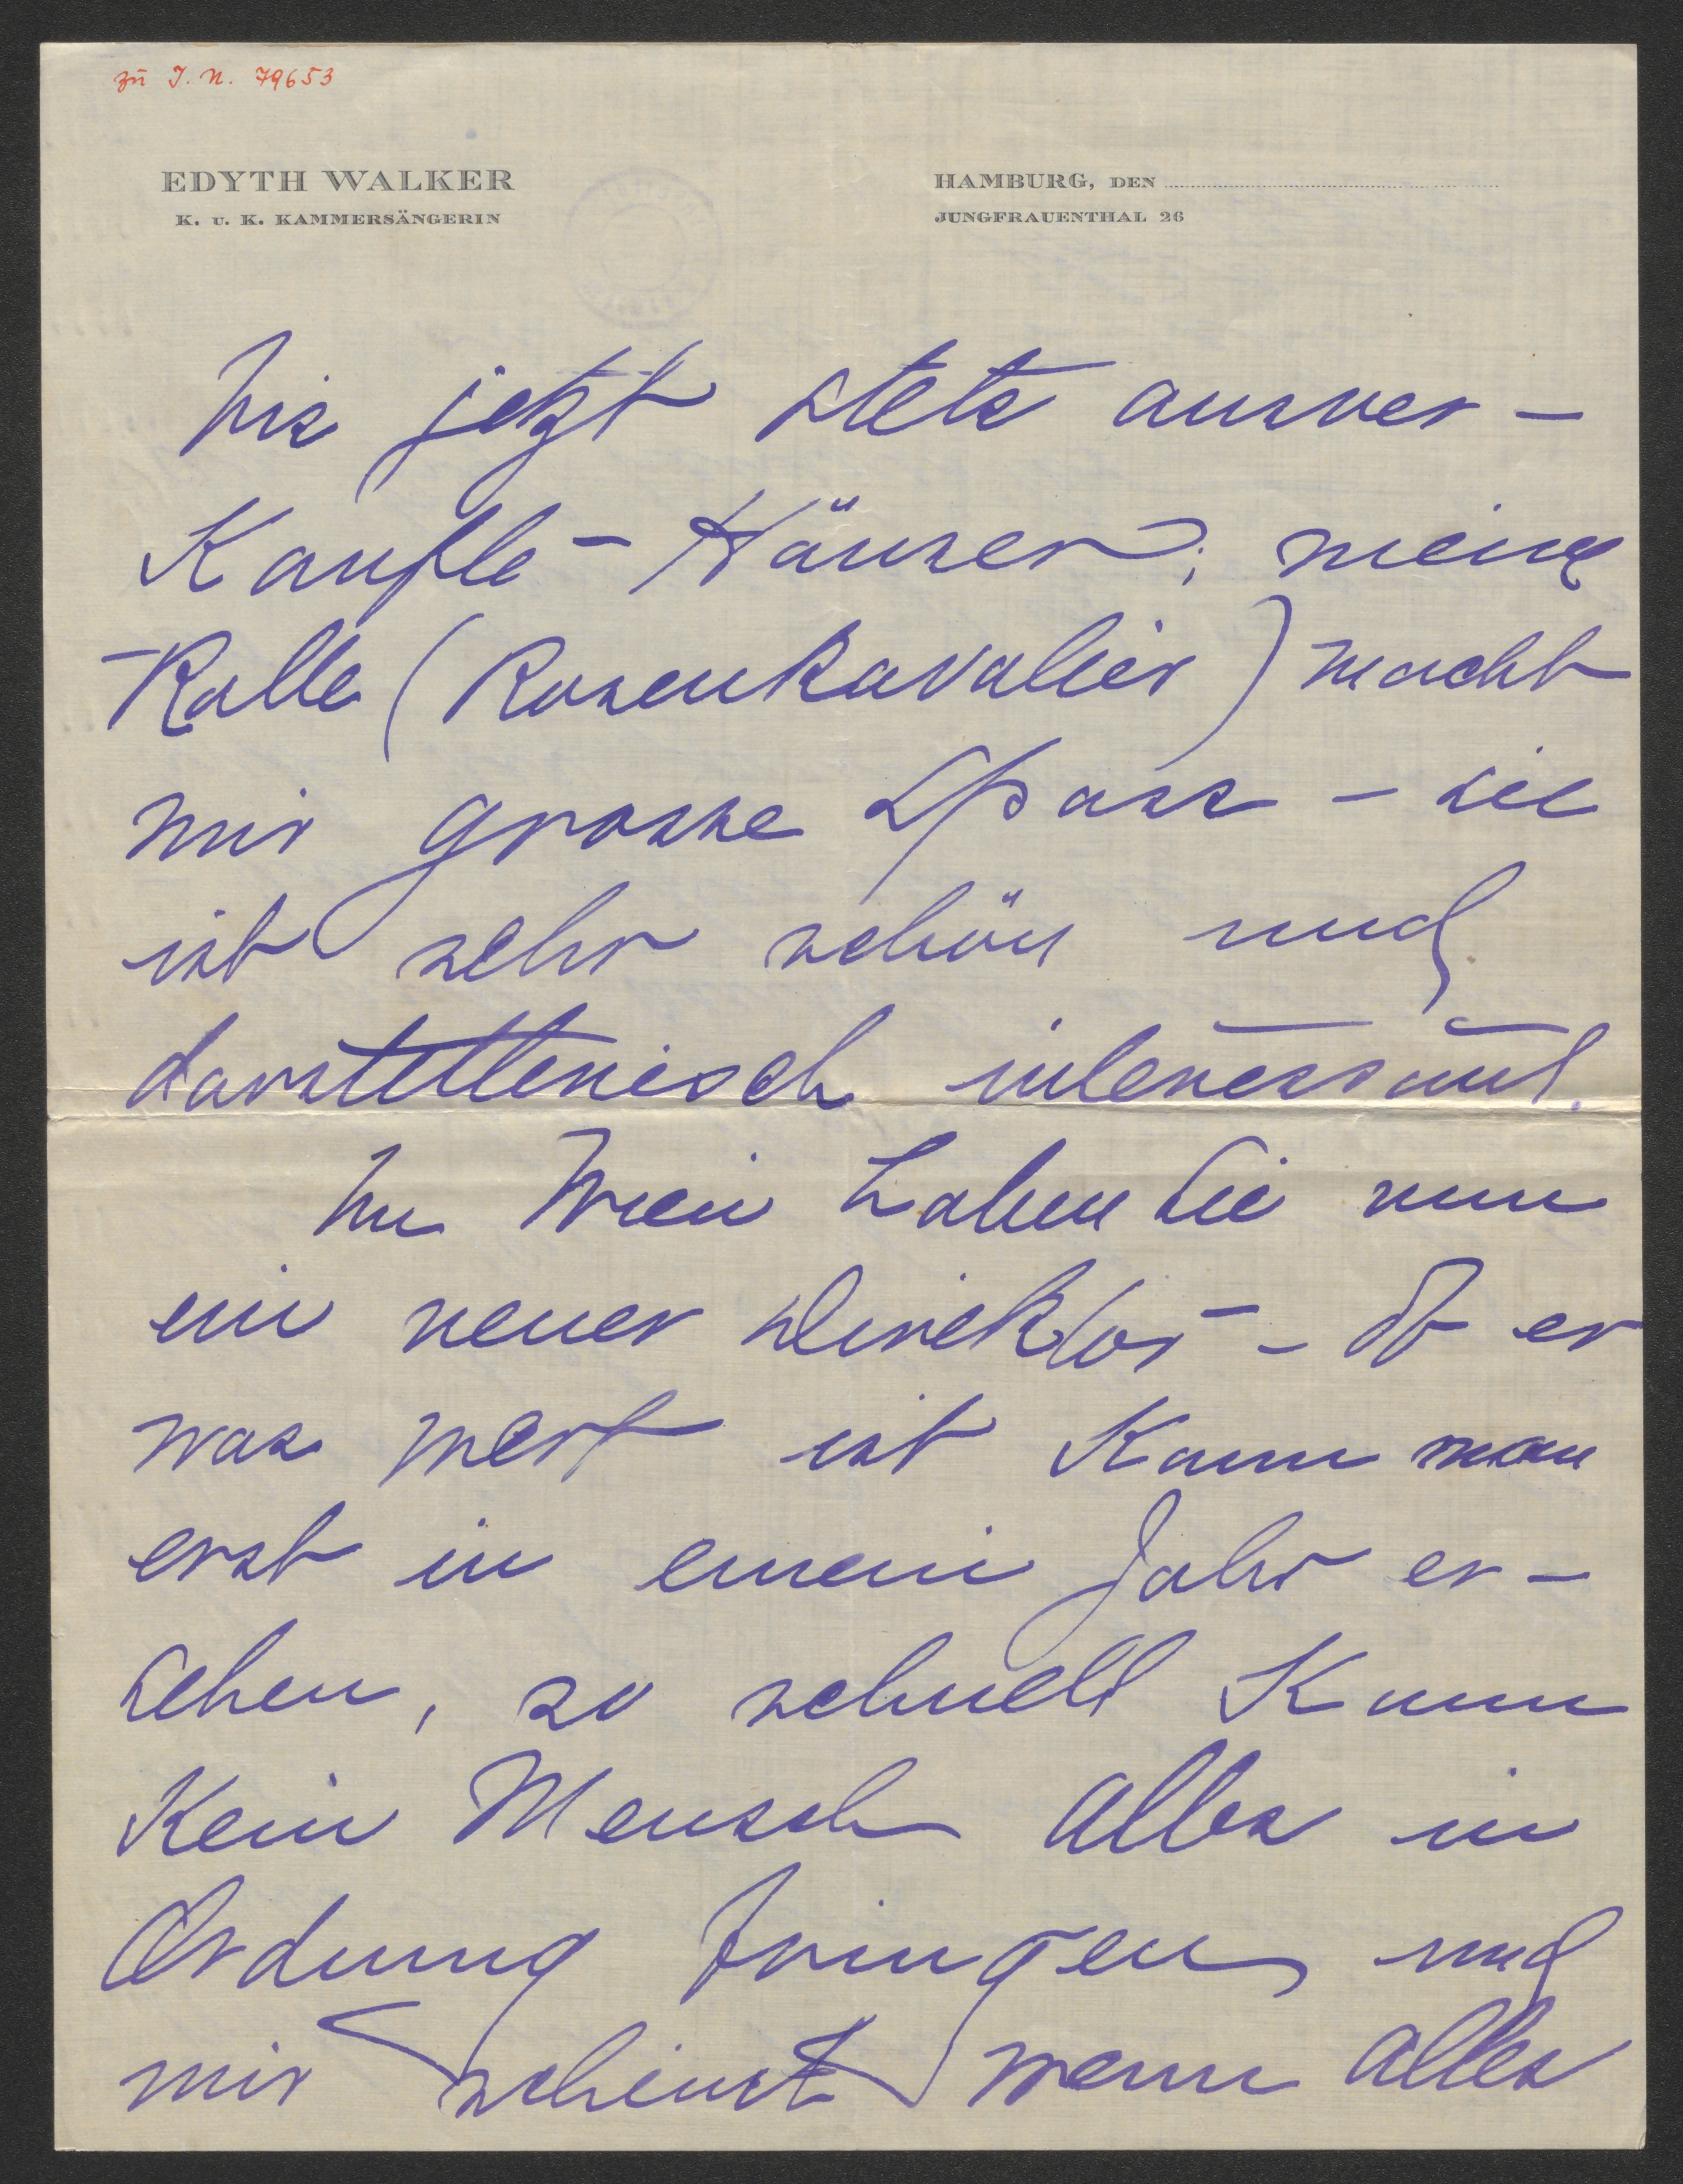 zu I. N. 79653
EDYTH WALKER
K. U. K. KAMMERSÄNGERIN
HAMBURG, DEN
JUNGFRAUENTHAL 26
bis jetzt stets ausver-
kaufte - Häuser; meine
Rolle (Rosenkavalier) macht
mir grosse Spass - sie
ist sehr schön und
darstellerisch interessant.
In Wien haben Sie nun
ein neuer Direktor - Ob er
was wert ist kann man
erst in einem Jahr er-
sehen, so schnell kann
kein Mensch alles in
Ordnung bringen und
mir scheint wenn alles